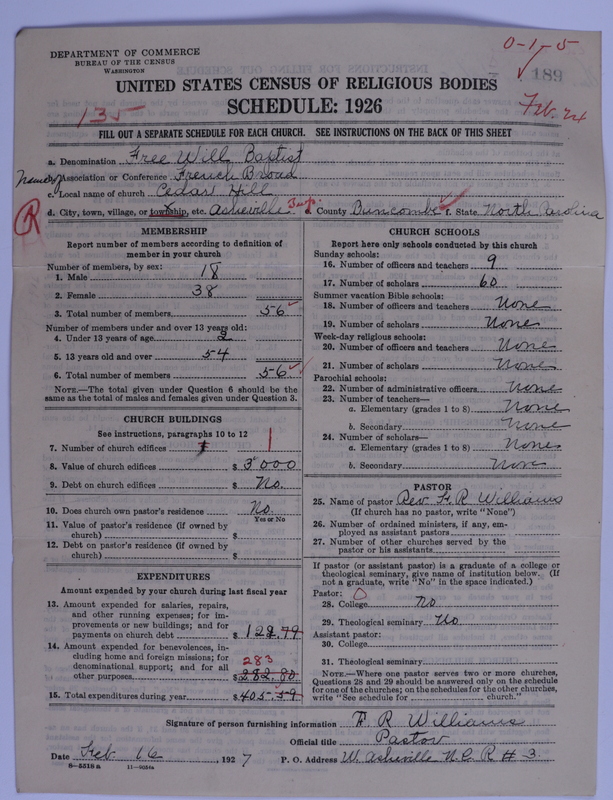 DEPARTMENT OF COMMERCE
BUREAU OF THE CENSUS
WASHINGTON
0-1-5
189
UNITED STATES CENSUS OF RELIGIOUS BODIES
SCHEDULE: 1926
135
Feb. 24
FILL OUT A SEPARATE SCHEDULE FOR EACH CHURCH. SEE INSTRUCTIONS ON THE BACK OF THIS SHEET
a. Denomination Free Will Baptist
Name of Association or Conference French Broad
c. Local name of church Cedar Hill
d. City, town, village, or township, etc. Asheville Twp. d. County Buncombe f. State North Carolina
R
MEMBERSHIP
Report number of members according to definition of member in your church
Number of members, by sex:
1. Male 18
2. Female 38
3. Total number of members 56
Number of members under and over 13 years old:
4. Under 13 years of age 2
5. 13 years old and over 54
6. Total number of members 56
NOTE.—The total given under Question 6 should be the same as the total of males and females given under Question 3.
CHURCH BUILDINGS
See instructions, paragraphs 10 to 12
7. Number of church edifices 1
8. Value of church edifices $ 3000
9. Debt on church edifices $ No.
10. Does church own pastor's residence No.
Yes or No
11. Value of pastor's residence (if owned by church) $
12. Debt on pastor's residence (if owned by church) $
EXPENDITURES
Amount expended by your church during last fiscal year
13. Amount expended for salaries, repairs, and other running expenses; for improvements or new buildings; and for payments on church debt $ 122.79
14. Amount expended for benevolences, including home and foreign missions; for denominational support; and for all other purposes 283 $ 282.80
15. Total expenditures during year $ 405.59
CHURCH SCHOOLS
Report here only schools conducted by this church
Sunday schools:
16. Number of officers and teachers 9
17. Number of scholars 60
Summer vacation Bible schools:
18. Number of officers and teachers None
19. Number of scholars None
Week-day religious schools:
20. Number of officers and teachers None
21. Number of scholars None
Parochial schools:
22. Number of administrative officers None
23. Number of teachers—
a. Elementary (grades 1 to 8) None
b. Secondary None
24. Number of scholars—
a. Elementary (grades 1 to 8) None
b. Secondary None
PASTOR
25. Name of pastor Rev. F. R. Williams
(If church has no pastor, write "None")
26. Number of ordained ministers, if any, employed as assistant pastors
27. Number of other churches served by the pastor or his assistants
If pastor (or assistant pastor) is a graduate of a college or theological seminary, give name of institution below. (If not a graduate, write "No" in the space indicated.)
Pastor: 0
28. College No
29. Theological seminary No
Assistant pastor:
30. College
31. Theological seminary
NOTE.—Where one pastor serves two or more churches, Questions 28 and 29 should be answered only on the schedule for one of the churches; on the schedules for the other churches, write "See schedule for church."
Signature of person furnishing information F. R. Williams
Official title Pastor
Date Feb 16, 1927 P. O. Address W. Asheville N.C. R # 3
8-5518a 11-9054a